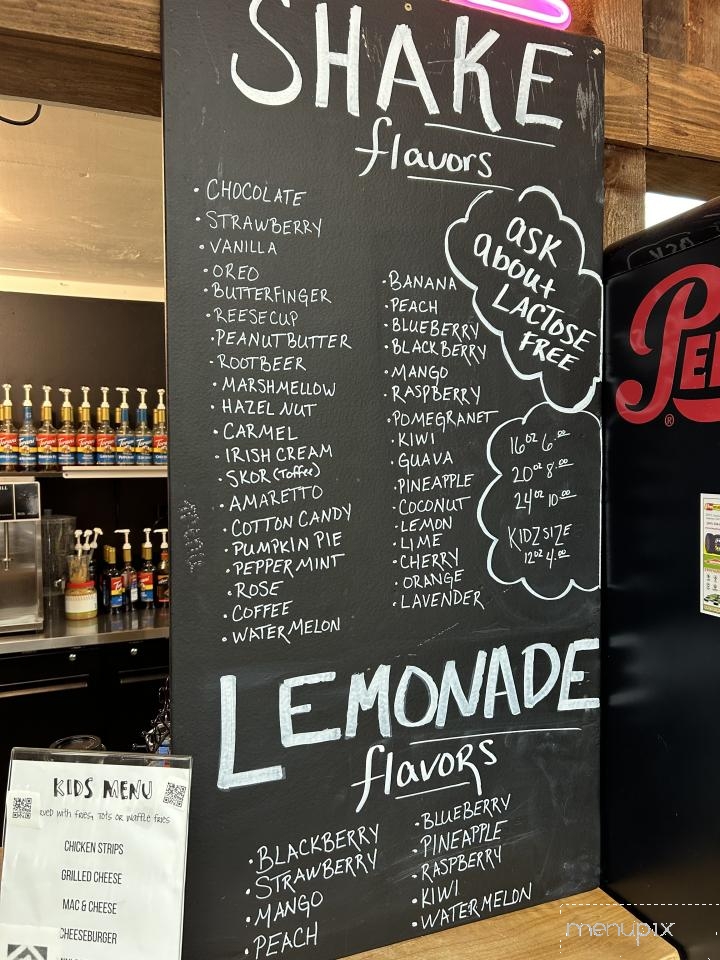 SHAKE
flavors
• CHOCOLATE
• STRAWBERRY
• VANILLA
• OREO
• BUTTERFINGER
• REESECUP
• PEANUTBUTTER
• ROOTBEER
• MARSHMELLOW
• HAZEL NUT
• CARMEL
• IRISH CREAM
• SKOR (Toffee)
• AMARETTO
• COTTON CANDY
• PUMPKIN PIE
• PEPPERMINT
• ROSE
• COFFEE
• WATERMELON
• BANANA
• PEACH
• BLUEBERRY
• BLACKBERRY
• MANGO
• RASPBERRY
• POMEGRANET
• KIWI
• GUAVA
• PINEAPPLE
• COCONUT
• LEMON
• LIME
• CHERRY
• ORANGE
• LAVENDER
ASK
about
LACTOSE
FREE
16oz 6.00
20oz 8.00
24oz 10.00
KIDZ SIZE
12oz 4.00
LEMONADE
flavors
• BLACKBERRY
• STRAWBERRY
• MANGO
• PEACH
• BLUEBERRY
• PINEAPPLE
• RASPBERRY
• KIWI
• WATERMELON
KIDS MENU
with fries, tots or waffle fries
CHICKEN STRIPS
GRILLED CHEESE
MAC & CHEESE
CHEESEBURGER
Torani
®
menupix